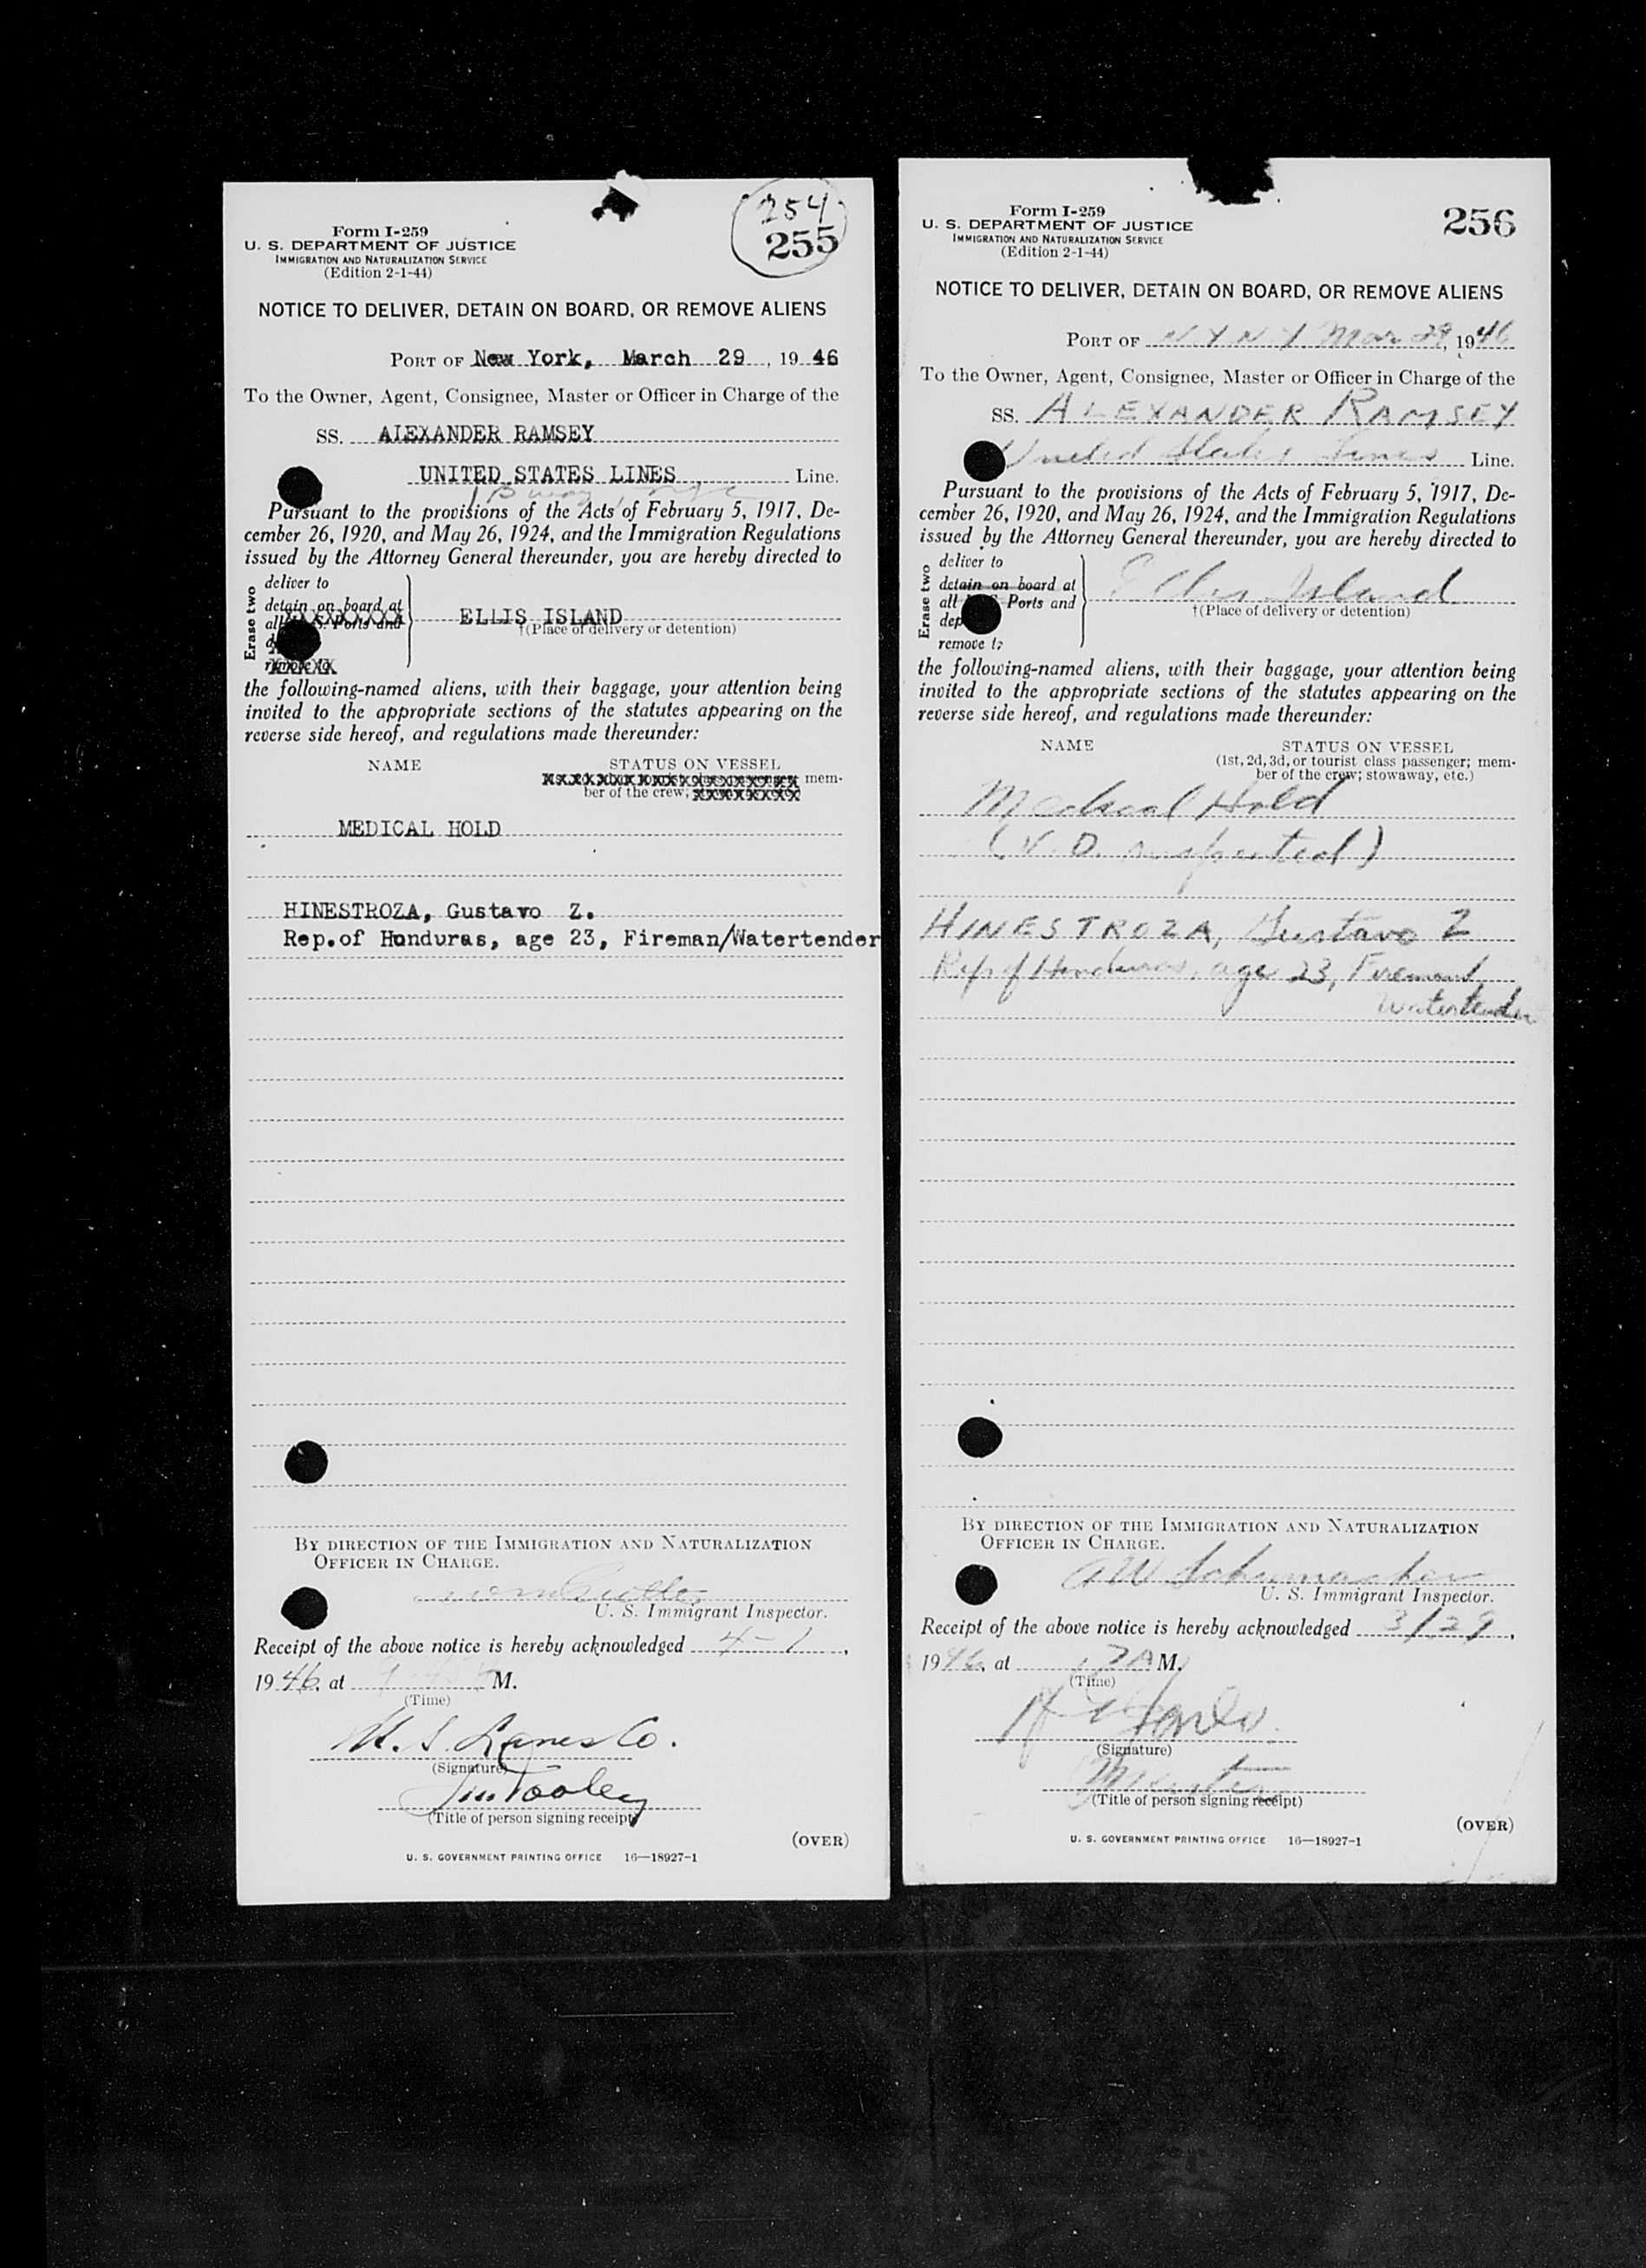 254
255
Form I-259
U. S. DEPARTMENT OF JUSTICE
IMMIGRATION AND NATURALIZATION SERVICE
(Edition 2-1-44)
NOTICE TO DELIVER, DETAIN ON BOARD, OR REMOVE ALIENS
PORT OF New York, March 29, 1946
To the Owner, Agent, Consignee, Master or Officer in Charge of the
SS. ALEXANDER RAMSEY
UNITED STATES LINES Line.
Pursuant to the provisions of the Acts of February 5, 1917, De-
cember 26, 1920, and May 26, 1924, and the Immigration Regulations
issued by the Attorney General thereunder, you are hereby directed to
Erase two
deliver to
detain on board at
all U. S. Ports and
remove to
ELLIS ISLAND
†(Place of delivery or detention)
the following-named aliens, with their baggage, your attention being
invited to the appropriate sections of the statutes appearing on the
reverse side hereof, and regulations made thereunder:
NAME STATUS ON VESSEL
mem-
ber of the crew;
MEDICAL HOLD
HINESTROZA, Gustavo Z.
Rep.of Honduras, age 23, Fireman/Watertender
BY DIRECTION OF THE IMMIGRATION AND NATURALIZATION
OFFICER IN CHARGE.
U. S. Immigrant Inspector.
Receipt of the above notice is hereby acknowledged 4-1,
1946, at M.
(Time)
U. S. Lines Co.
(Signature)
Tooley
(Title of person signing receipt)
(OVER)
U. S. GOVERNMENT PRINTING OFFICE 16—18927-1
256
Form I-259
U. S. DEPARTMENT OF JUSTICE
IMMIGRATION AND NATURALIZATION SERVICE
(Edition 2-1-44)
NOTICE TO DELIVER, DETAIN ON BOARD, OR REMOVE ALIENS
PORT OF N Y N Y Mar 29, 1946
To the Owner, Agent, Consignee, Master or Officer in Charge of the
SS. ALEXANDER RAMSEY
United States Lines Line.
Pursuant to the provisions of the Acts of February 5, 1917, De-
cember 26, 1920, and May 26, 1924, and the Immigration Regulations
issued by the Attorney General thereunder, you are hereby directed to
Erase two
deliver to
detain on board at
all Ports and
dep
remove to
Ellis Island
†(Place of delivery or detention)
the following-named aliens, with their baggage, your attention being
invited to the appropriate sections of the statutes appearing on the
reverse side hereof, and regulations made thereunder:
NAME STATUS ON VESSEL
(1st, 2d, 3d, or tourist class passenger; mem-
ber of the crew; stowaway, etc.)
Medical Hold
(V. D. suspected)
HINESTROZA, Gustavo Z
Rep of Honduras, age 23, Fireman/
Watertender
BY DIRECTION OF THE IMMIGRATION AND NATURALIZATION
OFFICER IN CHARGE.
AW Schumacher
U. S. Immigrant Inspector.
Receipt of the above notice is hereby acknowledged 3/29,
1946, at A M.
(Time)
(Signature)
Master
(Title of person signing receipt)
(OVER)
U. S. GOVERNMENT PRINTING OFFICE 16—18927-1